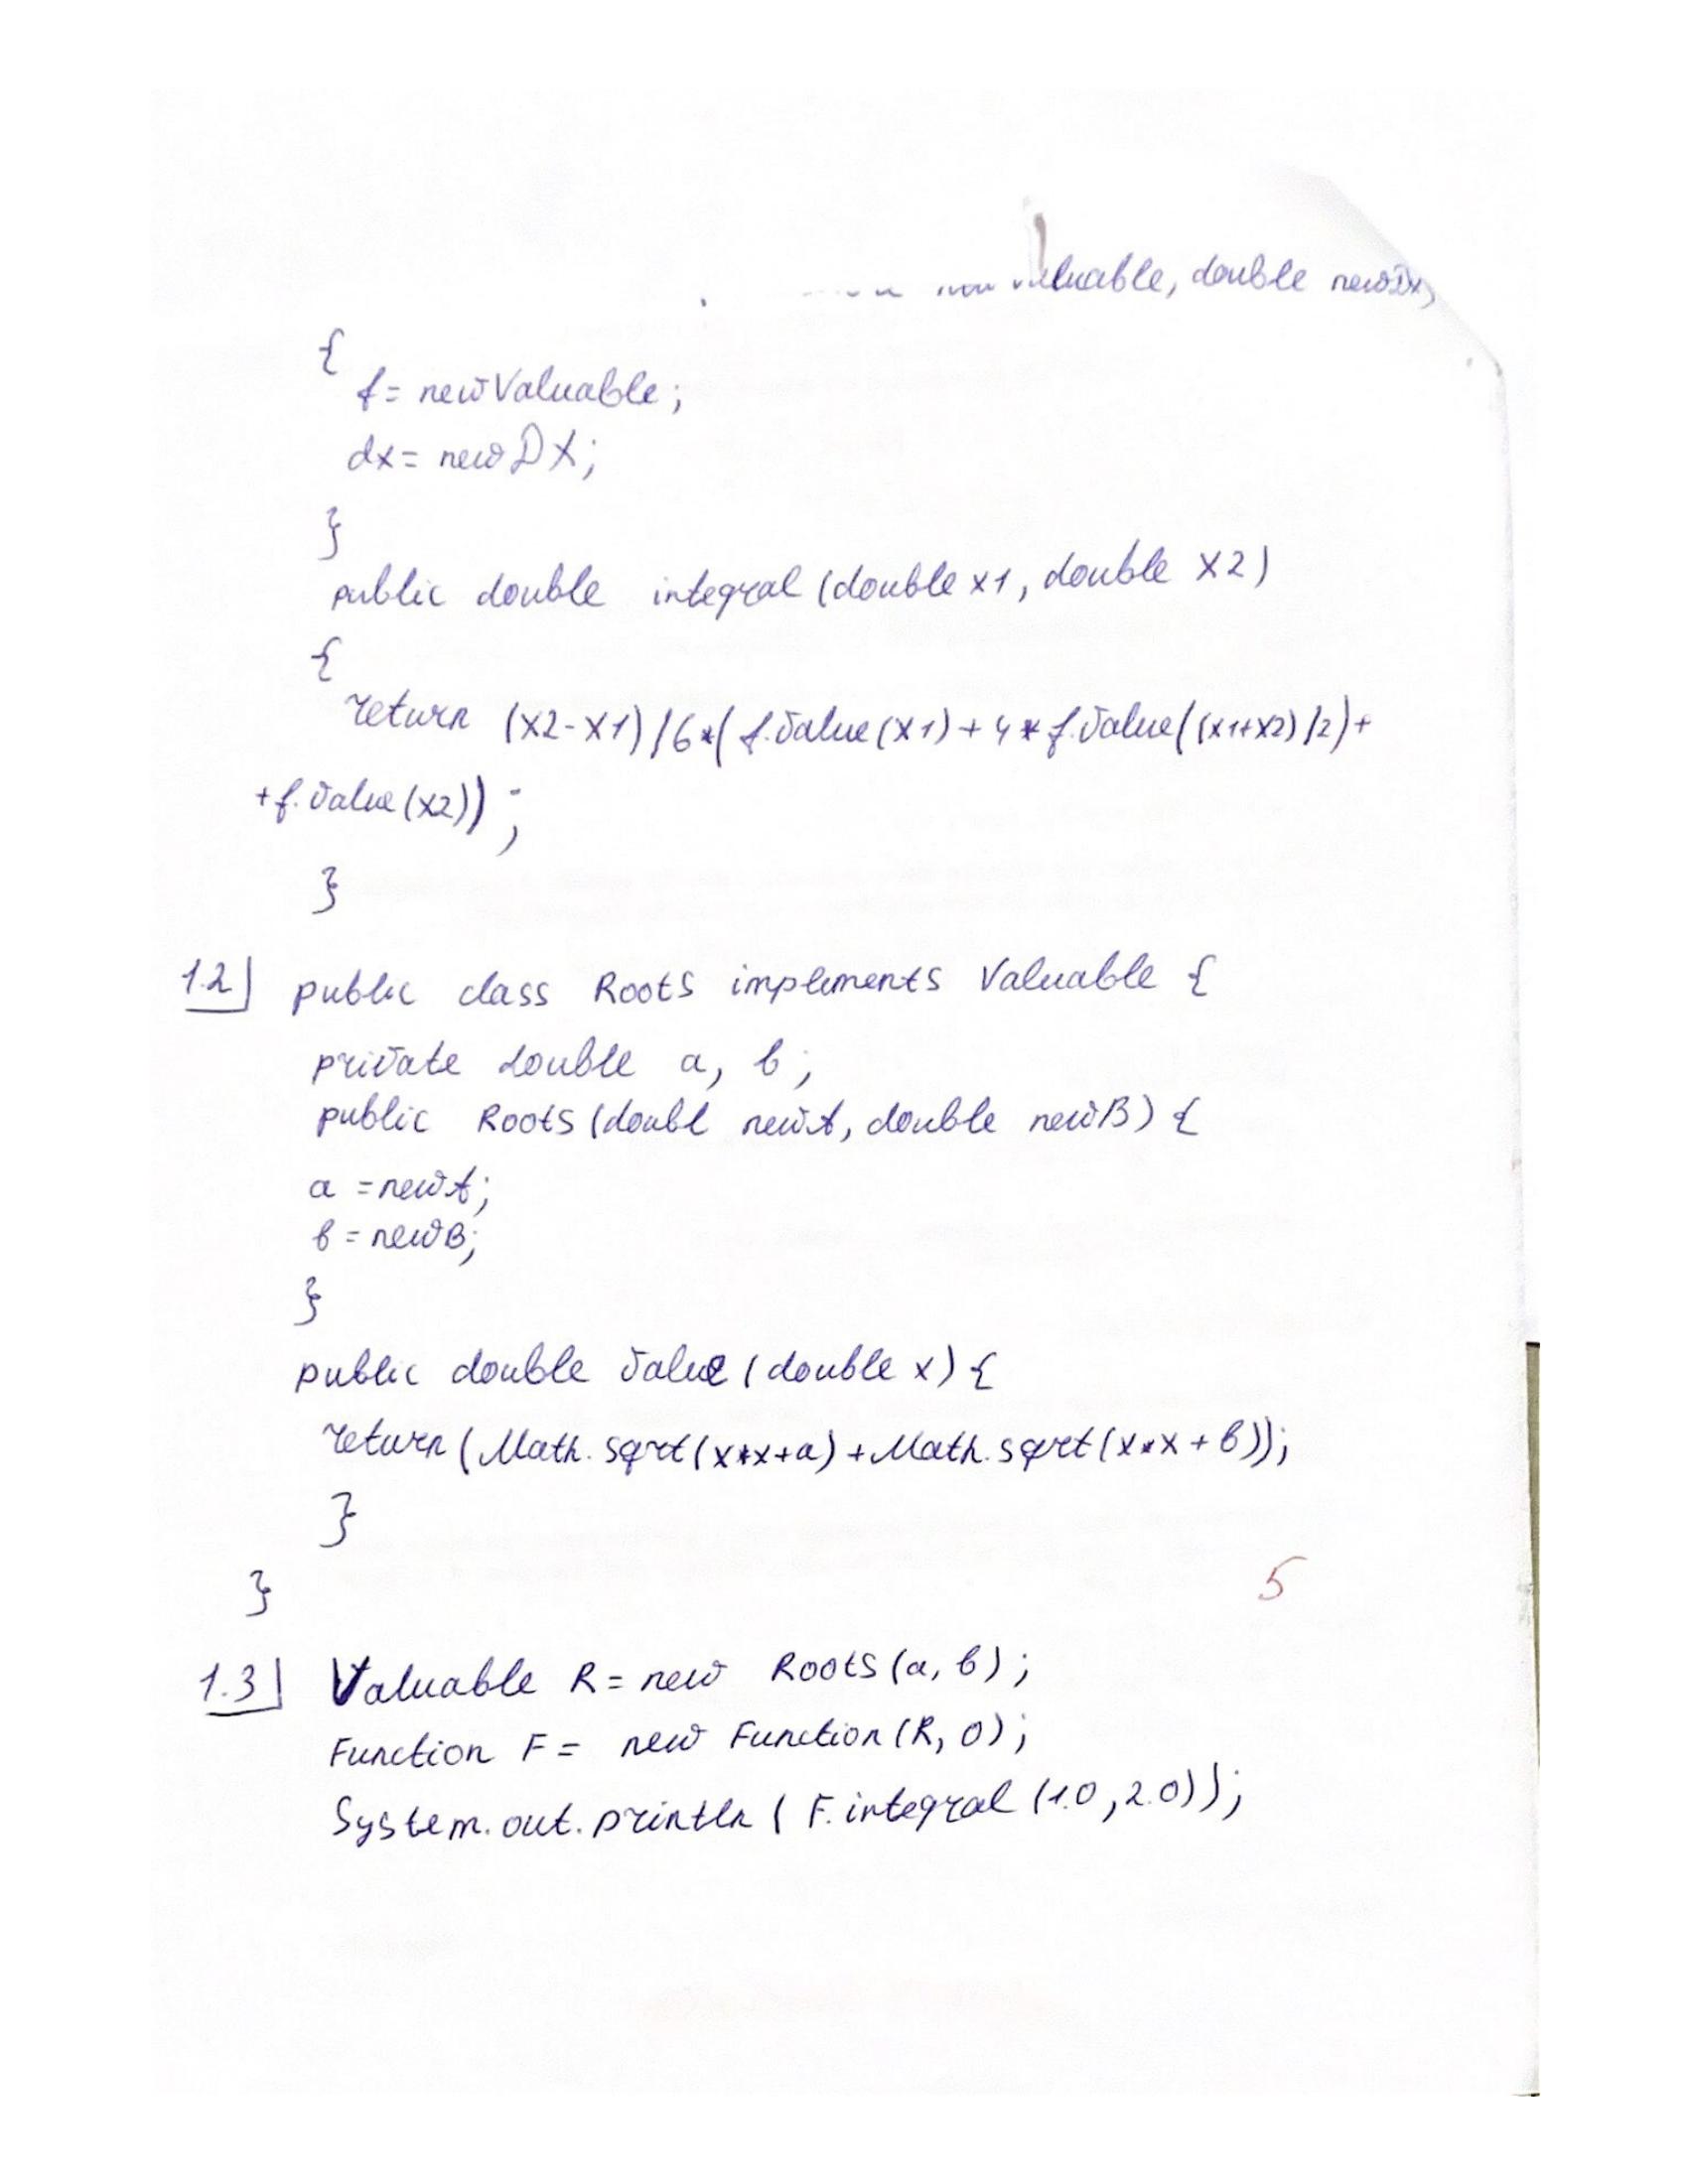 double newDx,
{
f= newValuable;
dx= newDX;
}
public double integral (double x1, double x2)
{
return (x2-x1)/6*(f.value(x1)+4*f.value((x1+x2)/2)+
+f.value(x2));
}
1.2 public class Roots implements Valuable {
private double a, b;
public Roots (doubl newA, double newB) {
a = newA;
b = newB;
}
public double value (double x) {
return (Math.sqrt(x*x+a)+Math.sqrt(x*x+b));
}
}
5
1.3 Valuable R= new Roots(a, b);
Function F= new Function(R, 0);
System.out.println( F.integral (1.0, 2.0));